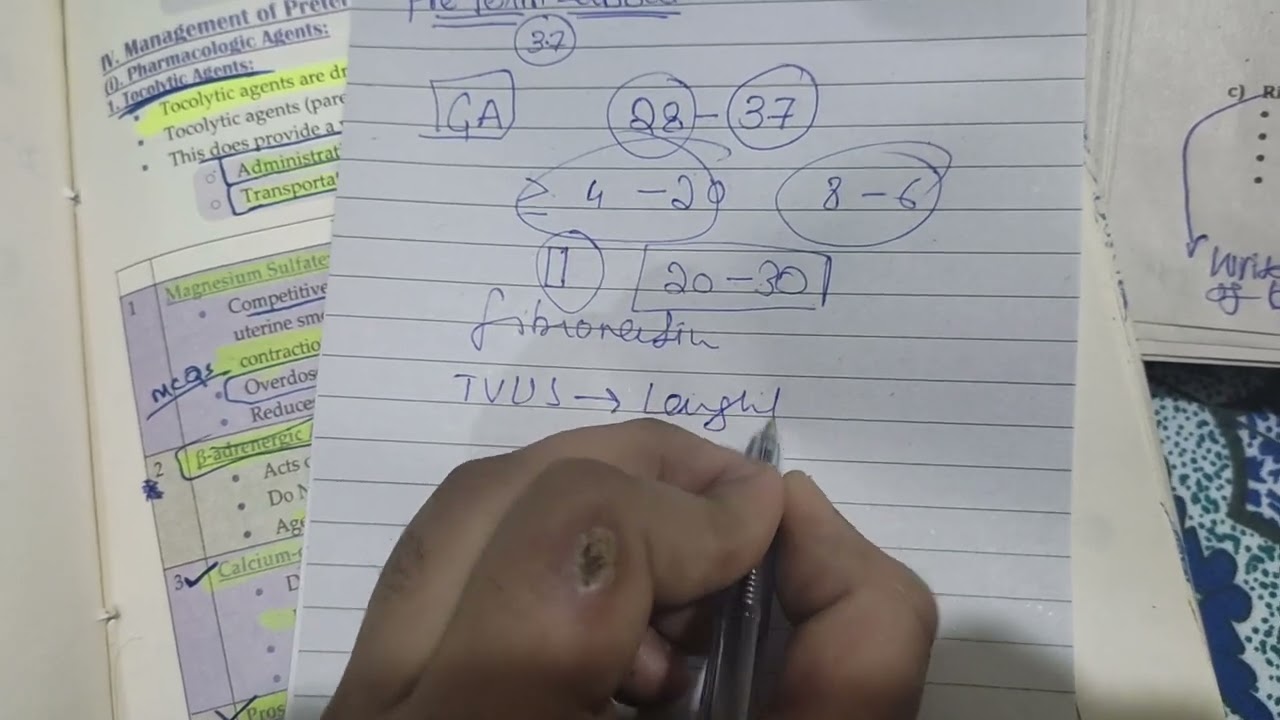 IV. Management of Preter
(i). Pharmacologic Agents:
1. Tocolytic Agents:
• Tocolytic agents are dr
• Tocolytic agents (pare
• This does provide a
○ Administrat
○ Transporta
1 Magnesium Sulfate
• Competitive
uterine smo
contractio
MCQs
• Overdos
• Reduce
2 β-adrenergic
• Acts
• Do N
• Age
3 Calcium-
• D
Pros
37
GA 28 - 37
≥ 4 - 20 8 - 6
20 - 30
fibronectin
TVUS →
c) Ri
Write
of